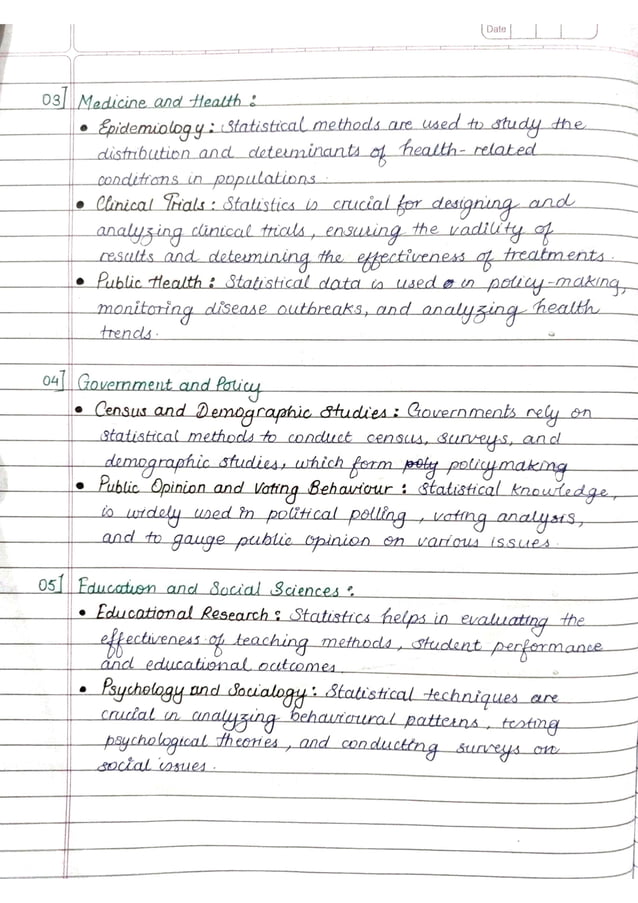 Date
03] Medicine and Health :
• Epidemiology : Statistical methods are used to study the
distribution and determinants of health-related
conditions in populations.
• Clinical Trials : Statistics is crucial for designing and
analyzing clinical trials, ensuring the vadility of
results and determining the effectiveness of treatments.
• Public Health : Statistical data is used in policy-making,
monitoring disease outbreaks, and analyzing health
trends.
04] Government and Policy
• Census and Demographic Studies : Governments rely on
statistical methods to conduct census, surveys, and
demographic studies, which form poly policymaking
• Public Opinion and Voting Behaviour : Statistical knowledge,
is widely used in political polling, voting analysis,
and to gauge public opinion on various issues.
05] Education and Social Sciences :
• Educational Research : Statistics helps in evaluating the
effectiveness of teaching methods, student performance
and educational outcomes.
• Psychology and Socialogy : Statistical techniques are
crucial in analyzing behavioural patterns, testing
psychological theories, and conducting surveys on
social issues.